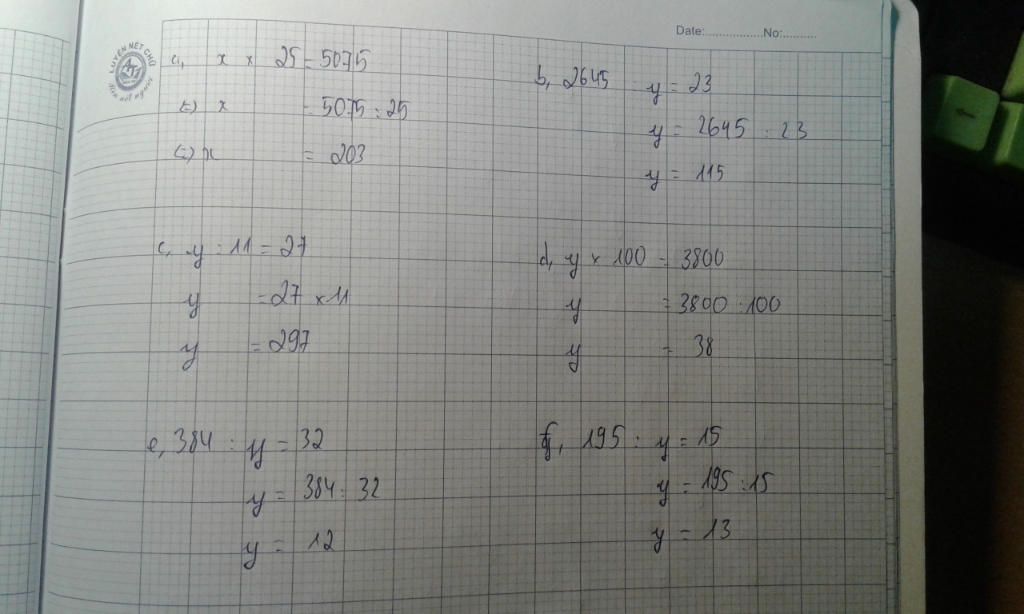 Date:................No:..........
LUYỆN NÉT CHỮ
Rèn nết người
a, x × 25 = 5075
(=) x = 5075 : 25
(=) x = 203
b, 2645 y = 23
y = 2645 : 23
y = 115
c, y : 11 = 27
y = 27 × 11
y = 297
d, y × 100 = 3800
y = 3800 : 100
y = 38
e, 384 : y = 32
y = 384 : 32
y = 12
f, 195 : y = 15
y = 195 : 15
y = 13